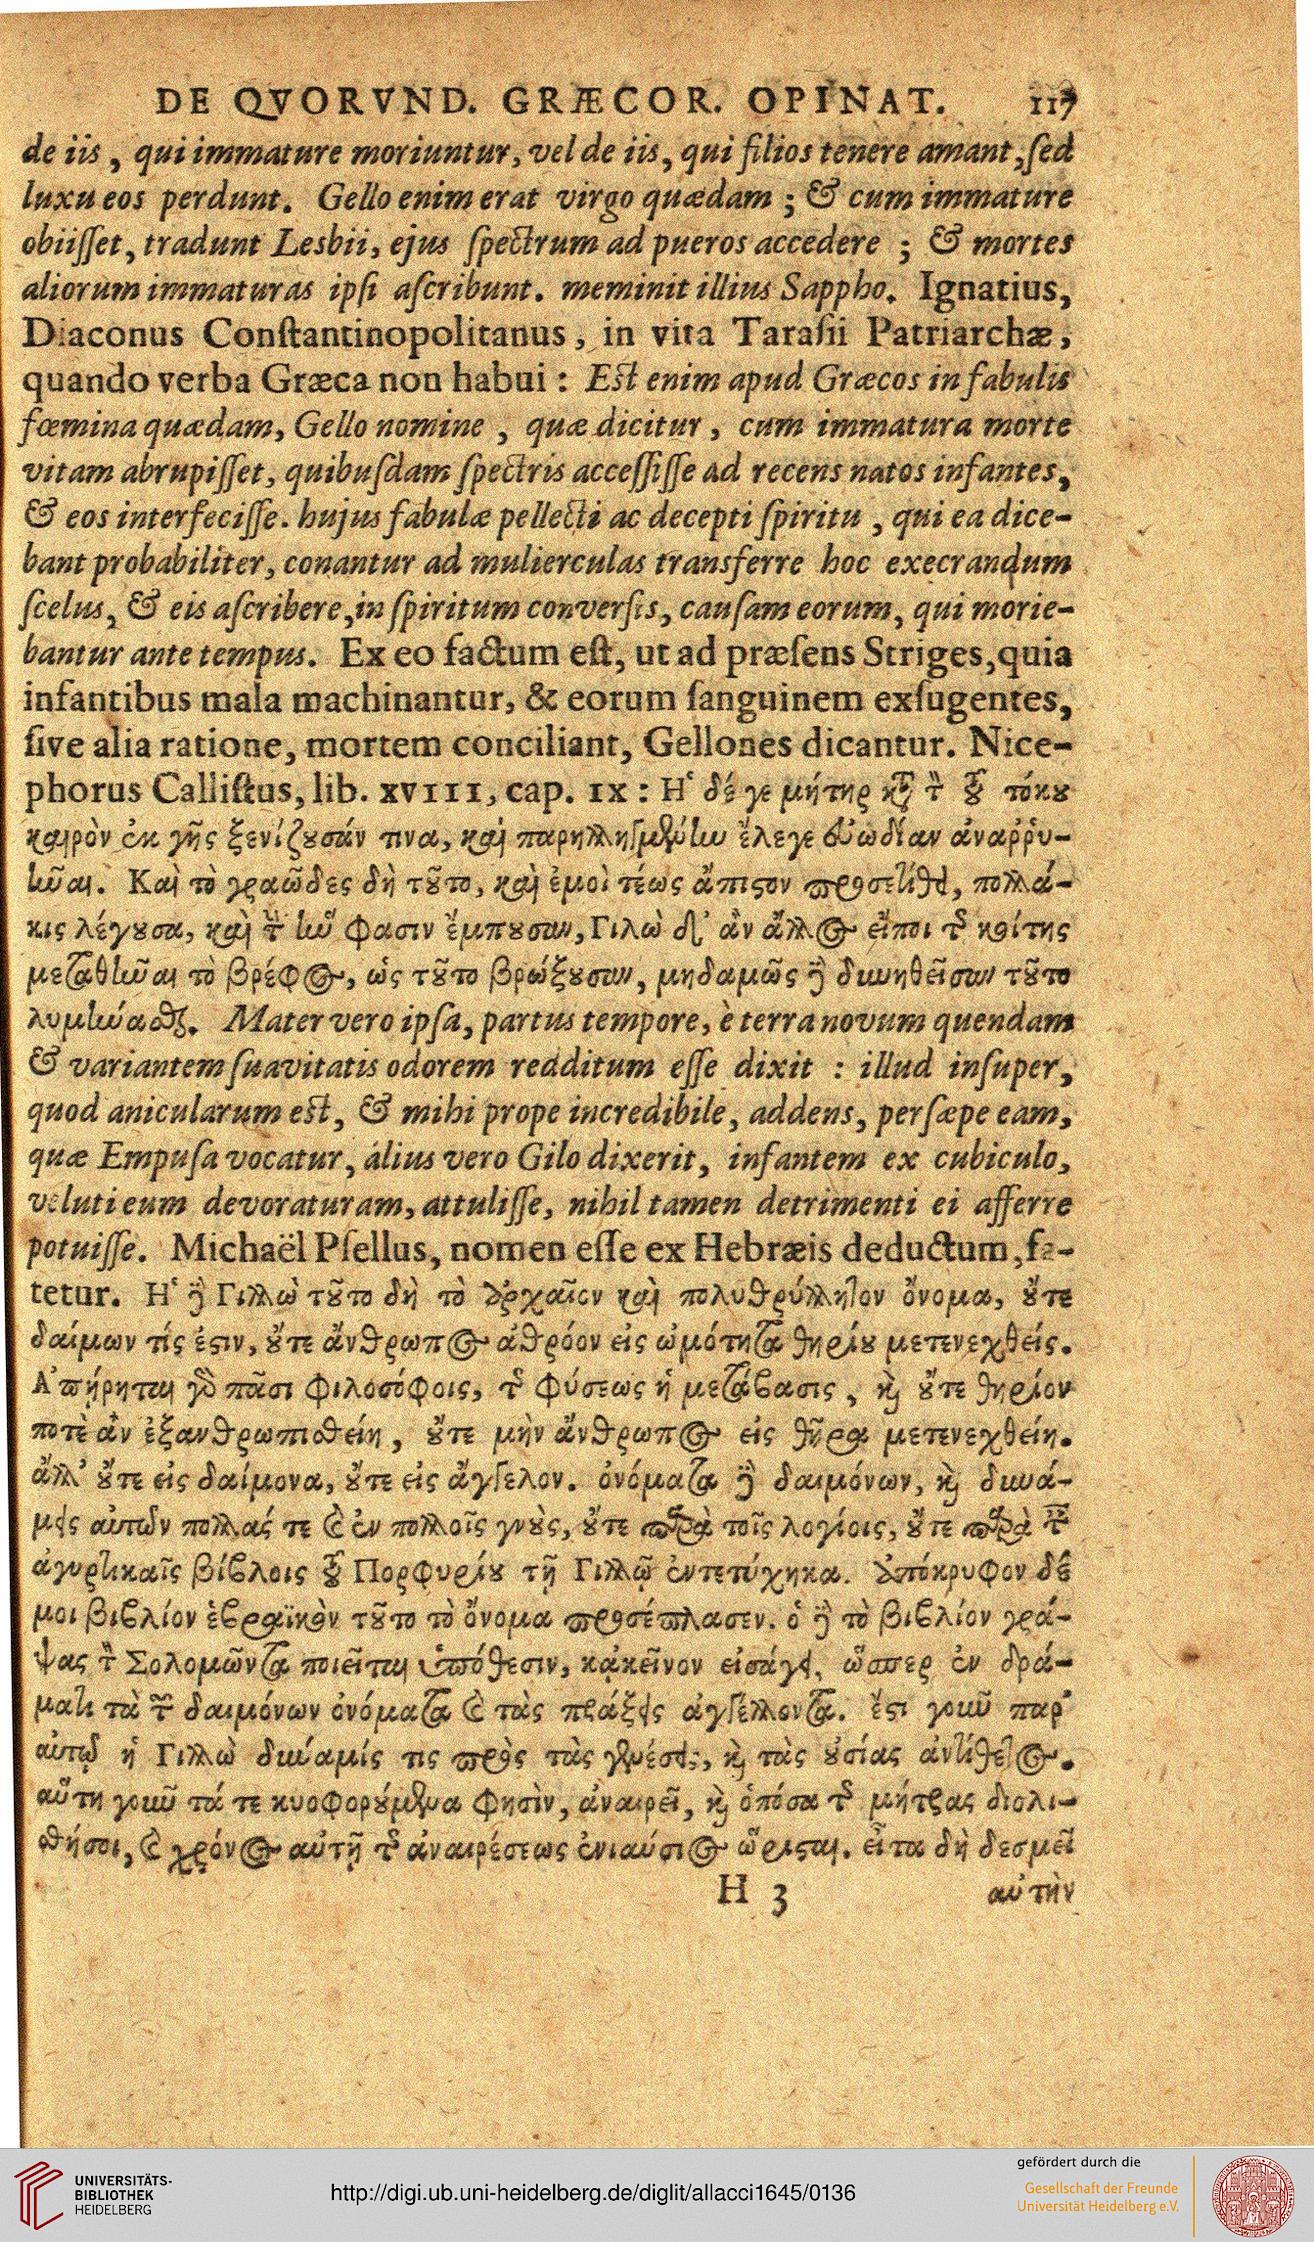 DE QVORVND. GRÆCOR. OPINAT. 117
de iis, qui immature moriuntur, vel de iis, qui filios tenere amant, ſed
luxu eos perdunt. Gello enim erat virgo quædam; & cum immature
obiiſſet, tradunt Lesbii, ejus ſpectrum ad pueros accedere; & mortes
aliorum immaturas ipſi aſcribunt. meminit illius Sappho. Ignatius,
Diaconus Conſtantinopolitanus, in vita Taraſii Patriarchæ,
quando verba Græca non habui: Eſt enim apud Græcos in fabulis
fœmina quædam, Gello nomine, quæ dicitur, cum immatura morte
vitam abrupiſſet, quibuſdam ſpectris acceſſiſſe ad recens natos infantes,
& eos interfeciſſe. hujus fabulæ pellecti ac decepti ſpiritu, qui ea dice-
bant probabiliter, conantur ad mulierculas transferre hoc execrandum
ſcelus, & eis aſcribere, in ſpiritum converſis, cauſam eorum, qui morie-
bantur ante tempus. Ex eo factum eſt, ut ad præſens Striges, quia
infantibus mala machinantur, & eorum ſanguinem exſugentes,
ſive alia ratione, mortem conciliant, Gellones dicantur. Nice-
phorus Calliſtus, lib. XVIII, cap. IX: Η῾ δέ γε μήτηρ κατὰ τὸν τοῦ τόκου
καιρὸν ἐκ γῆς ξενίζουσάν τινα, καὶ παρηλλημένην ἔλεγε εὐωδίαν ἀναῤῥυ-
ῆναι. Καὶ τὸ γραῶδες δὴ τοῦτο, καὶ ἐμοὶ τέως ἄπιστον προσετίθει, πολλά-
κις λέγουσα, καὶ τὴν ἣν φασιν ἔμπουσαν, Γιλὼ δ' ἂν ἄλλος εἴποι τῆς κοίτης
μεταθῆναι τὸ βρέφος, ὡς τοῦτο βρώξουσαν, μηδαμῶς δὲ δυνηθεῖσαν τοῦτο
λυμήνασθαι. Mater vero ipſa, partus tempore, è terra novum quendam
& variantem ſuavitatis odorem redditum eſſe dixit: illud inſuper,
quod anicularum eſt, & mihi prope incredibile, addens, perſæpe eam,
quæ Empuſa vocatur, alius vero Gilo dixerit, infantem ex cubiculo,
veluti eum devoraturam, attuliſſe, nihil tamen detrimenti ei afferre
potuiſſe. Michaël Pſellus, nomen eſſe ex Hebræis deductum, fa-
tetur. Η῾ δὲ Γιλλὼ τοῦτο δὴ τὸ ἀρχαῖον καὶ πολυθρύλλητον ὄνομα, οὔτε
δαίμων τίς ἐστιν, οὔτε ἄνθρωπος ἀθρόον εἰς ὠμότητα θηρίου μετενεχθείς.
Α᾿πήρηται γὰρ πᾶσι φιλοσόφοις, τῆς φύσεως ἡ μετάβασις, καὶ οὔτε θηρίον
ποτὲ ἂν ἐξανθρωπισθείη, οὔτε μὴν ἄνθρωπος εἰς θῆρα μετενεχθείη.
ἀλλ' οὔτε εἰς δαίμονα, οὔτε εἰς ἄγγελον. ὀνόματα δὲ δαιμόνων, καὶ δυνά-
μεις αὐτῶν πολλάς τε καὶ ἐν πολλοῖς γνοὺς, οὔτε παρὰ τοῖς λογίοις, οὔτε παρὰ ταῖς
ἀγυρτικαῖς βίβλοις τοῦ Πορφυρίου τῇ Γιλλῷ ἐντετύχηκα. ἀπόκρυφον δέ
μοι βιβλίον ἑβραϊκὸν τοῦτο τὸ ὄνομα προσέπλασεν. ὁ δὲ τὸ βιβλίον γρά-
ψας τὸν Σολομῶντα ποιεῖται ὑπόθεσιν, κἀκεῖνον εἰσάγει, ὥσπερ ἐν δρά-
ματι τὰ τῶν δαιμόνων ὀνόματα καὶ τὰς πράξεις ἀγγέλλοντα. ἔστι γοῦν παρ'
αὐτῷ ἡ Γιλλὼ δύναμίς τις πρὸς τὰς γενέσεις, καὶ τὰς οὐσίας ἀντίθετος.
αὕτη γοῦν τά τε κυοφορούμενα φησὶν, ἀναιρεῖ, καὶ ὁπόσα τῆς μήτρας διολι-
σθήσοι, καὶ χρόνος αὐτῇ τῆς ἀναιρέσεως ἐνιαύσιος ὥρισται. εἶτα δὴ δεσμεῖ
H 3 αὐτὴν
UNIVERSITÄTS-
BIBLIOTHEK
HEIDELBERG
http://digi.ub.uni-heidelberg.de/diglit/allacci1645/0136
gefördert durch die
Gesellschaft der Freunde
Universität Heidelberg e.V.